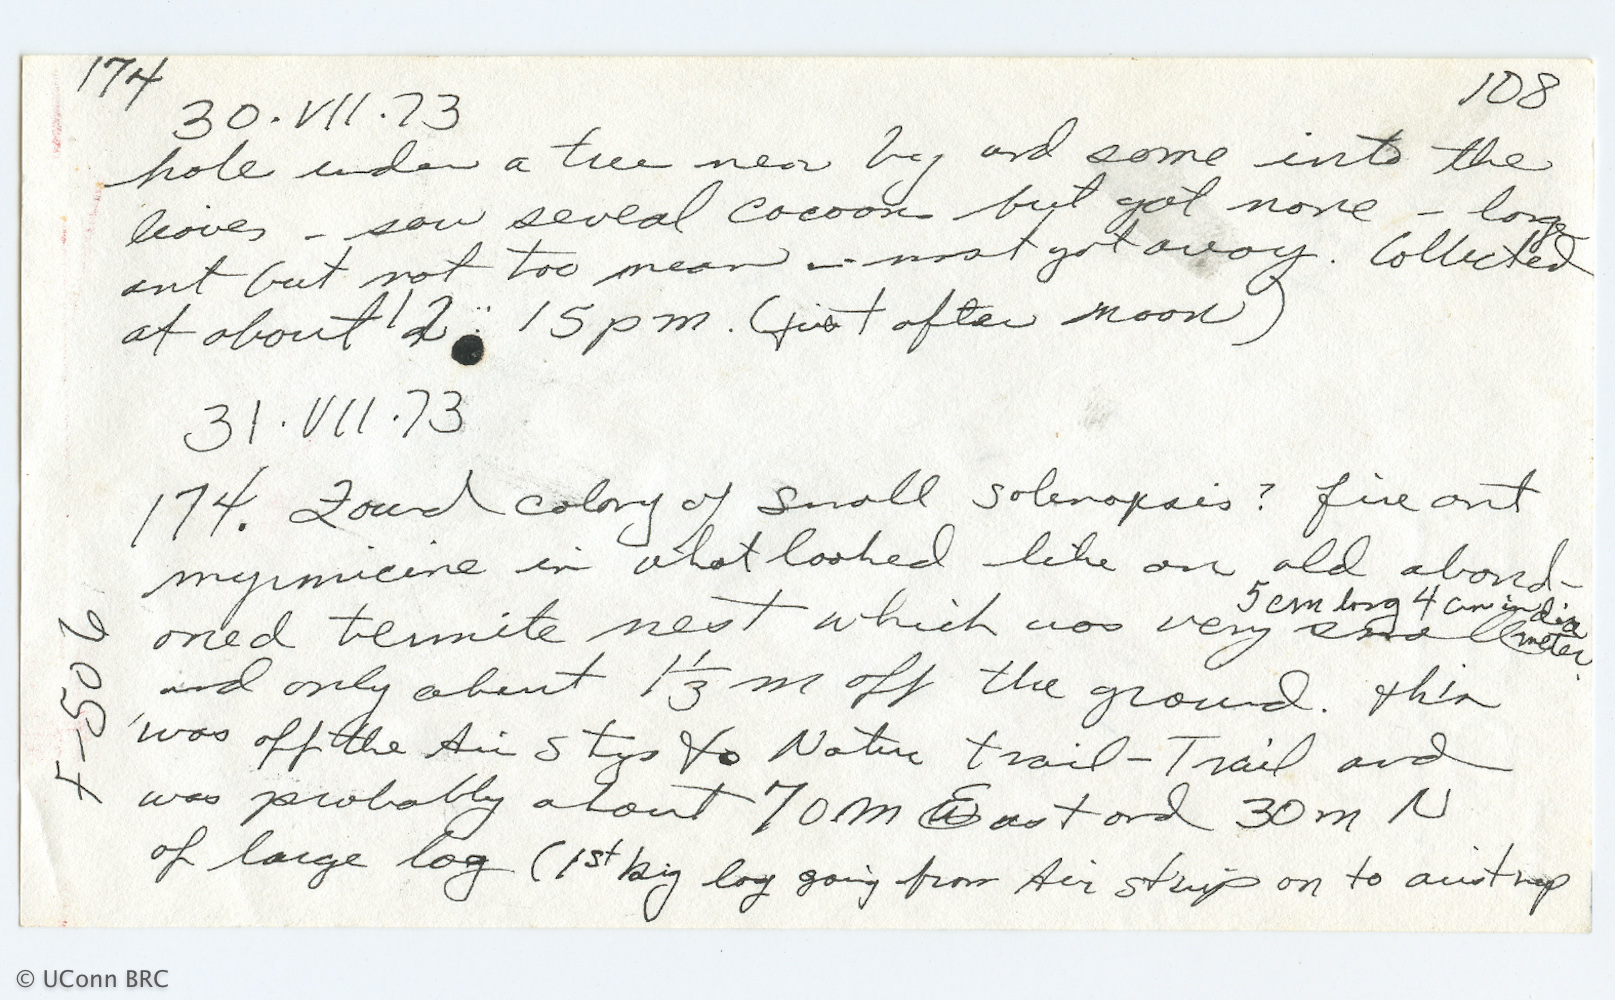 174
108
30.VII.73
hole under a tree near by and some into the
leaves - saw several cocoons but got none - large
ant but not too mean - most got away. Collected
at about 12:15pm. (just after noon)
31.VII.73
174. Found colony of small solenopsis? fire ant
myrmicine in what looked like an old aband-
oned termite nest which was very small 5 cm long 4 cm in diameter
and only about 1 1/3 m off the ground. this
was off the Air Strip to Nature trail-Trail and
was probably about 70m East and 30m N
of large log (1st big log going from Air strip on to airstrip
F-506
© UConn BRC